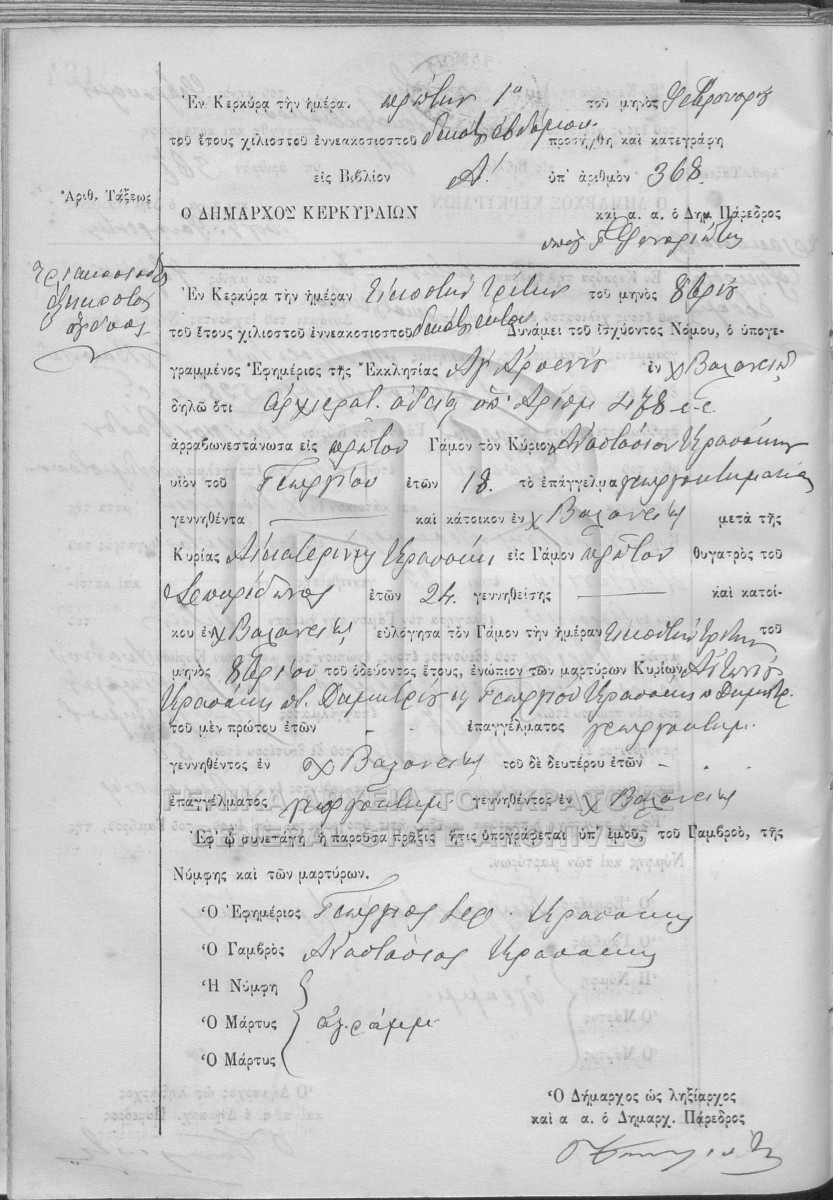 Ἐν Κερκύρᾳ τὴν ἡμέρα. πρώτην 1η τοῦ μηνὸς Φεβρουαρίου
τοῦ ἔτους χιλιοστοῦ ἐννεακοσιοστοῦ δεκάτου ἑβδόμου προσήχθη καὶ κατεγράφη
εἰς Βιβλίον Α! ὑπ' ἀριθμὸν 368.
Ἀριθ. Τάξεως
Ο ΔΗΜΑΡΧΟΣ ΚΕΡΚΥΡΑΙΩΝ καὶ α. α. ὁ Δημ. Πάρεδρος
τριακοσιοστὸς
ἑξηκοστὸς
ὄγδοος
Ἐν Κερκύρᾳ τὴν ἡμέραν εἰκοστὴν τρίτην τοῦ μηνὸς 8βρίου
τοῦ ἔτους χιλιοστοῦ ἐννεακοσιοστοῦ δεκάτου ἕκτου Δυνάμει τοῦ ἰσχύοντος Νόμου, ὁ ὑπογε-
γραμμένος Ἐφημέριος τῆς Ἐκκλησίας Ἁγ. Ἀρσενίου ἐν χ Βαλανειῷ
δηλῶ ὅτι ἀρχιερατ. ἀδείᾳ ὑπ' Ἀριθμ 478 ε-ε
ἀρραβωνεστάνωσα εἰς πρῶτον Γάμον τὸν Κύριον Ἀναστάσιον Κρασάκην
υἱὸν τοῦ Γεωργίου ἐτῶν 18. τὸ ἐπάγγελμα γεωργοκτηματίας
γεννηθέντα καὶ κάτοικον ἐν χ Βαλανειῷ μετὰ τῆς
Κυρίας Αἰκατερίνης Κρασάκη εἰς Γάμον πρῶτον θυγατρὸς τοῦ
Σπυρίδωνος ἐτῶν 24. γεννηθείσης καὶ κατοί-
κου ἐν χ Βαλανειῷ εὐλόγησα τὸν Γάμον τὴν ἡμέραν εἰκοστὴν τρίτην τοῦ
μηνὸς 8βρίου τοῦ ὁδεύοντος ἔτους, ἐνώπιον τῶν μαρτύρων Κυρίων Ἀντωνίου
Κρασάκη π. Δημητρίου κ Γεωργίου Κρασάκη π Δημητρ.
τοῦ μὲν πρώτου ἐτῶν ἐπαγγέλματος γεωργοκτημ.
γεννηθέντος ἐν χ Βαλανειῷ τοῦ δὲ δευτέρου ἐτῶν
ἐπαγγέλματος γεωργοκτημ γεννηθέντος ἐν χ Βαλανειῷ
ΓΕΝΙΚΑ ΑΡΧΕΙΑ ΤΟΥ ΚΡΑΤΟΥΣ
Ἐφ' ᾧ συνετάγη ἡ παροῦσα πρᾶξις ἥτις ὑπογράφεται ὑπ' ἐμοῦ, τοῦ Γαμβροῦ, τῆς
GENERAL STATE ARCHIVES
Νύμφης καὶ τῶν μαρτύρων.
Ὁ Ἐφημέριος Γεώργιος Ιερ. Κρασάκης
Ὁ Γαμβρὸς Ἀναστάσιος Κρασάκης
Ἡ Νύμφη
Ὁ Μάρτυς ἀγράμμ.
Ὁ Μάρτυς
Ὁ Δήμαρχος ὡς ληξίαρχος
καὶ α α. ὁ Δημαρχ. Πάρεδρος